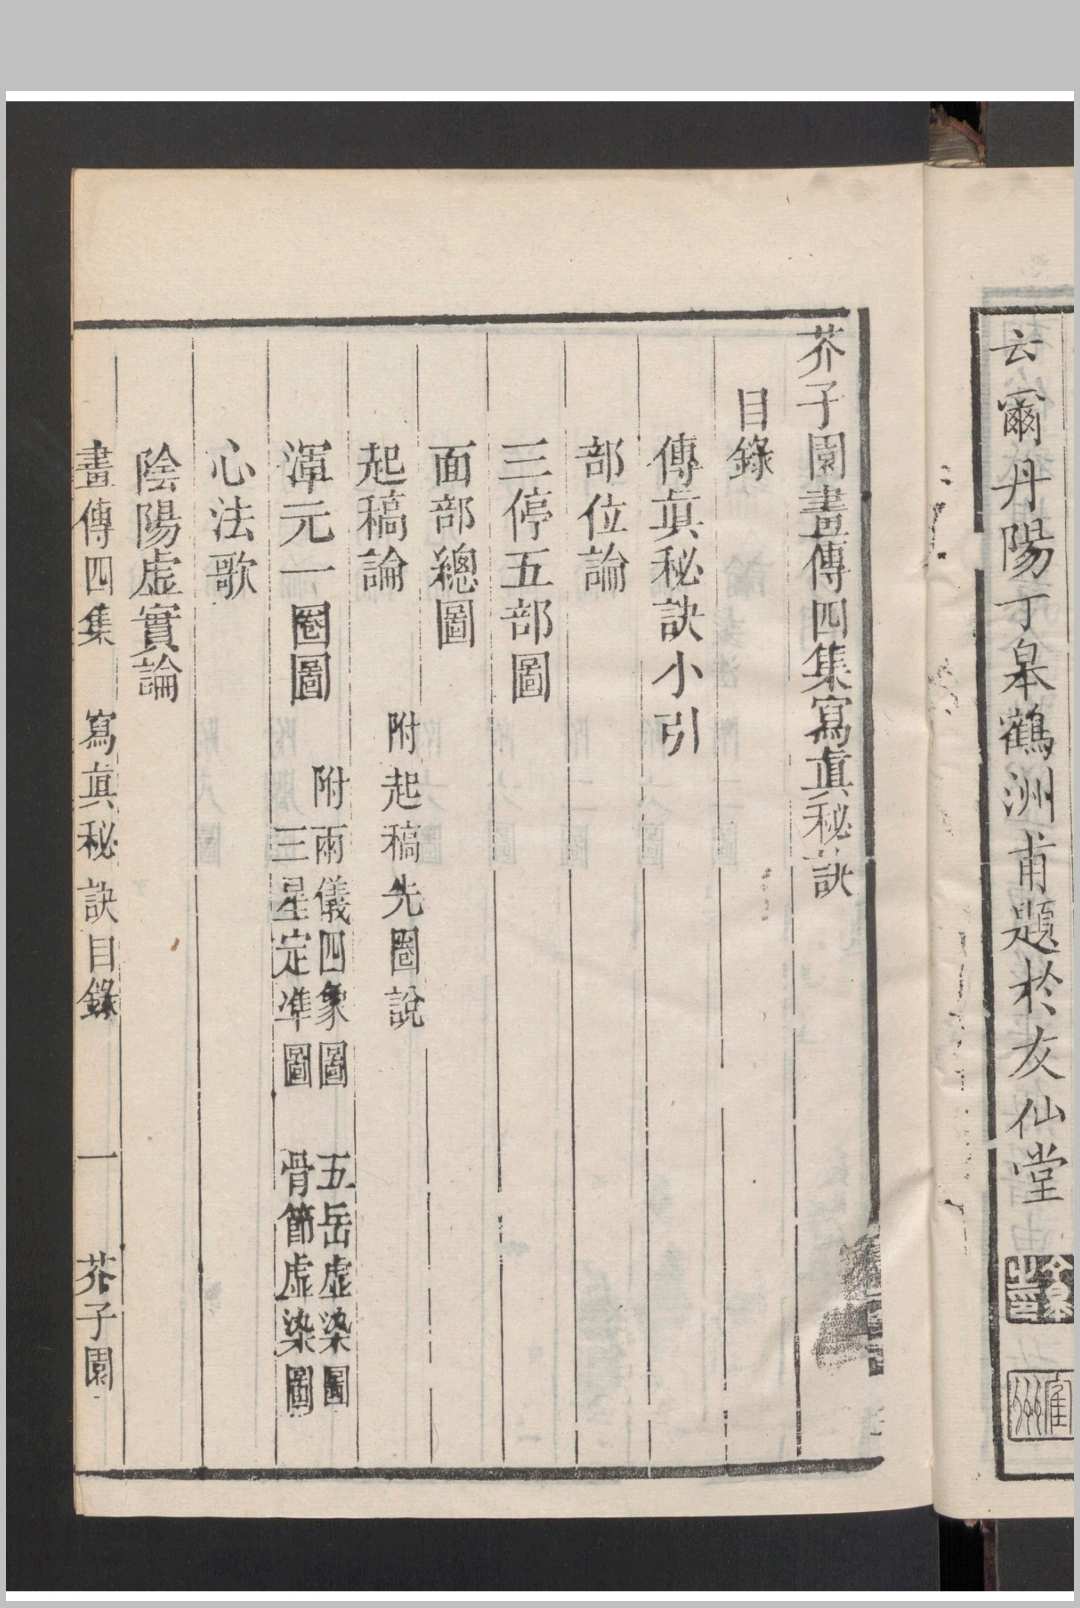 云爾丹陽丁皋鶴洲甫題於友仙堂
芥子園畫傳四集寫眞秘訣
目錄
傳眞秘訣小引
部位論
三停五部圖
面部總圖
起稿論
附起稿先圈說
渾元一圈圖
附兩儀四象圖
三星定準圖
五岳虛染圖
骨節虛染圖
心法歌
陰陽虛實論
畫傳四集
寫眞秘訣目錄
一
芥子園